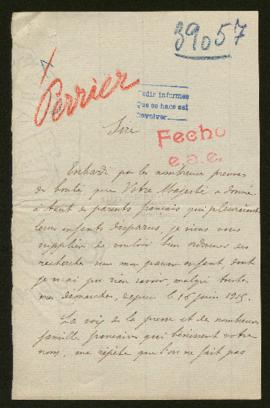 39057
Perrier
Pedir informes
Que se hace así
Devolver
Fecho
e.a.e.
Sire
Enhardi par les nombreuses preuves
de bonté que Votre Majesté a donné
à tant de parents français qui pleuraient
leurs enfants disparus, je viens vous
supplier de vouloir bien ordonner des
recherches sur mon pauvre enfant dont
je n'ai pu rien savoir, malgré toutes
mes démarches, depuis le 16 juin 1915.
La voix de la presse et de nombreuses
familles françaises qui bénissent votre
nom, me répète que l'on ne fait pas